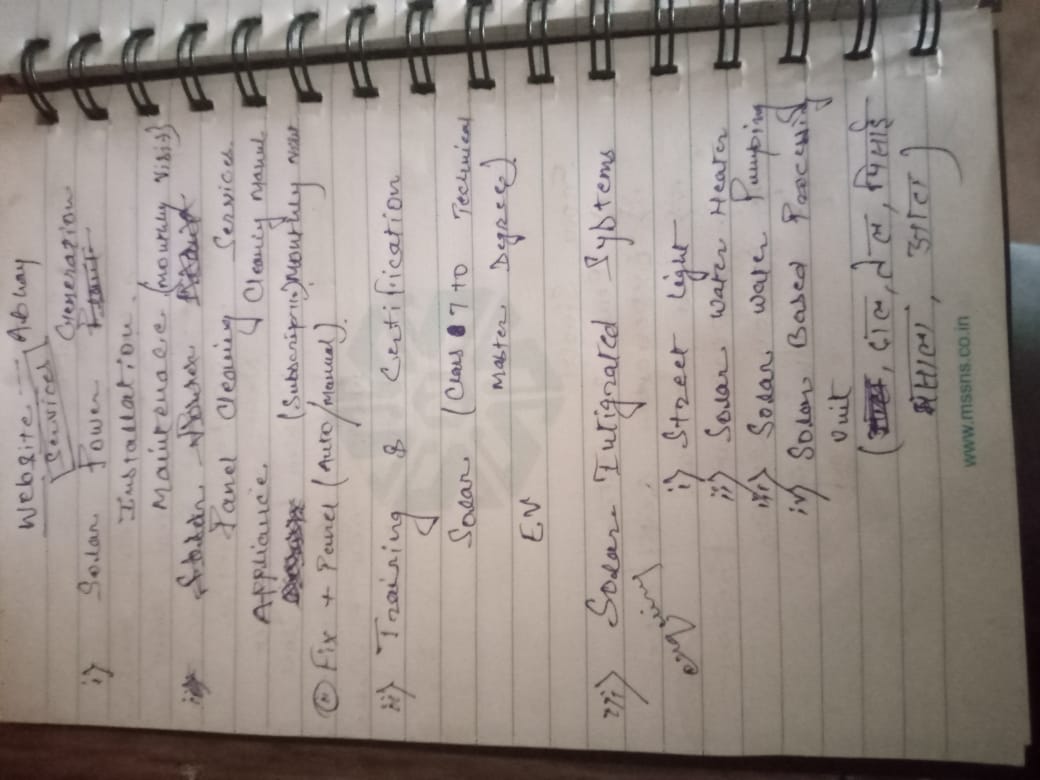 Website — Abhay
Services
Generation
i) Solar Power
Installation
Maintenace (Monthly Visit)
Panel Cleaning Services
Appliance Cleaning Manul
(Subscription) Monthly
Fix + Panel (Auto/Manual)
ii) Training & Certification
Solar (Class 7 to Technical
Master Degree)
EV
iii) Solar Intigrated Systems
enquiry
i) Street Light
ii) Solar Water Heater
iii) Solar Water Pumping
iv) Solar Based Processing
Unit
( , दाल, तेल, पिसाई
मसाला, आटा )
www.mssns.co.in